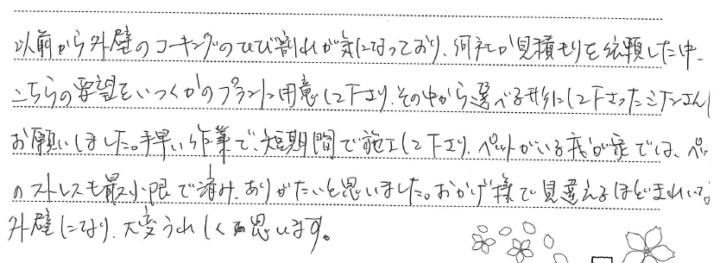 以前から外壁のコーキングのひび割れが気になっており、何社か見積もりを依頼した中、
こちらの要望をいくつかのプランに用意して下さり、その中から選べる形にして下さったミケンさんに
お願いしました。手早い作業で、短期間で施工して下さり、ペットがいる我が家では、ペッ
のストレスも最小限で済み、ありがたいと思いました。おかげ様で見違えるほどきれいな
外壁になり、大変うれしく思います。